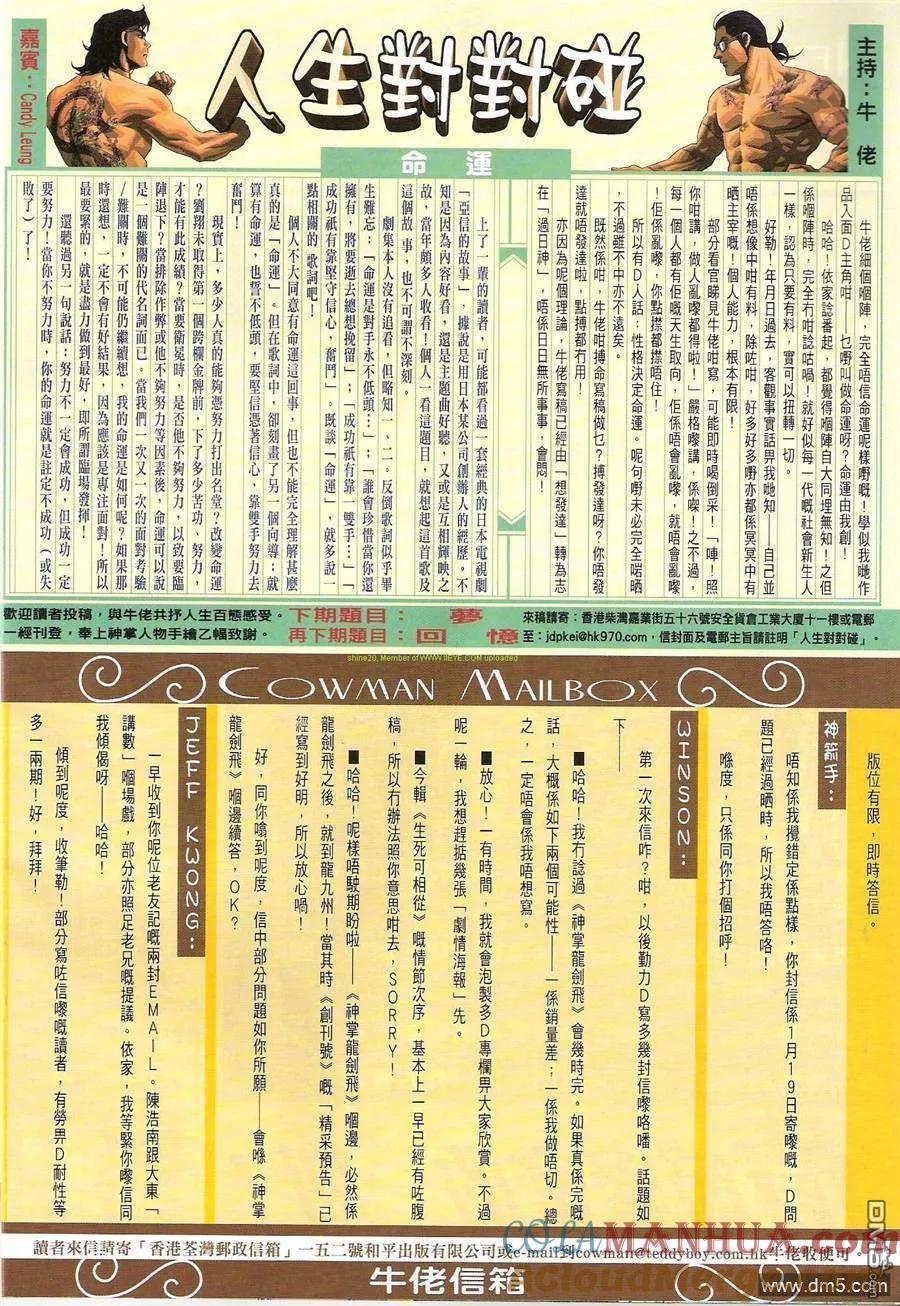 人生對對碰
主持：牛佬
嘉賓：Candy Leung
命運
牛佬細個嗰陣，完全唔信命運呢樣嘢嘅！學似我哋作
品入面D主角咁　乜嘢叫做命運呀？命運由我創！
哈哈！依家諗番起，都覺得嗰陣自大同埋無知！之但
係嗰陣時，完全冇咁諗咕喎！就好似每一代嘅社會新生人
一樣，認為只要有料，實可以扭轉一切。
好勒！年月日過去，客觀事實話畀我哋知——自己並
唔係想像中咁有料，除咗咁，好多好多嘢亦都係冥冥中有
晒主宰嘅！個人能力，根本有限！
部分看官睇見牛佬咁寫，可能即時喝倒采！「唓！照
你咁講，係咪亂嚟都得啦！」嚴格嚟講，係㗎！之不過，
每一個人都有佢嘅天生取向，佢係唔會亂嚟，就唔會亂嚟
！佢係亂嚟，你點㩒都㩒唔住！
所以有D人話：性格決定命運。呢句嘢未必完全啱晒
，不過雖不中亦不遠矣。
既然係咁，牛佬咁搏命寫稿做乜？搏發達呀？你唔發
達就唔發達啦，點搏都冇用！
亦因為呢個理論，牛佬寫稿已經由「想發達」轉為志
在「過日神」，唔係日日無所事事，會悶！
上了一輩的讀者，可能都看過一套經典的日本電視劇
「亞信的故事」，據說是用日本某公司創辦人的經歷。不
知是因為內容好看，還是主題曲好聽，又或是互相輝映之
故，當年頗多人收看！個人一看這題目，就想起這首歌及
這個故 事，也不可謂不深刻。
劇集本人沒有追看，但略知一、二。反倒歌詞似乎畢
生難忘：「命運是對手永不低頭…」；「誰會珍惜當你還
擁有，將要逝去總想挽留」；「成功祇有靠一 雙手…」「
成功祇有靠堅守信心，奮鬥」。既談「命運」，就多說一
點相關的 歌詞吧！
個人不大同意有命運這回事，但也不能完全理解甚麼
真的是「命運」。但在歌詞中，卻刻畫了另一個向導：就
算有命運，也誓不低頭，要堅信憑著信心，靠雙手努力去
奮鬥！
現實上，多少人真的能夠憑努力打出名堂？改變命運
？劉翔未取得第一個跨欄金牌前，下了多少苦功、努力，
才能有此成績？當要衛冕時，是否他不夠努力，以致要臨
陣退下？當排除作弊或他不夠努力等因素後，命運可以說
是一個難關的代名詞而已。當我們一次又一次的面對考驗
/難關時，不可能仍繼續想，我的命運是如何呢？如果那
時還想，一定不會有好結果，因為應該是專注面對！所以
最要緊的，就是盡力做到最好，即所謂臨場發揮！
還聽過另一句說話：努力不一定會成功，但成功一定
要努力！當你不努力時，你的命運就是註定不成功（或失
敗了）了！
歡迎讀者投稿，與牛佬共抒人生百態感受。下期題目：　夢
一經刊登，奉上神掌人物手繪乙幅致謝。再下期題目：回　憶
來稿請寄：香港柴灣嘉業街五十六號安全貨倉工業大廈十一樓或電郵
至：jdpkei@hk970.com，信封面及電郵主旨請註明「人生對對碰」。
shine20, Member of WWW.IIEYE.COM uploaded
COWMAN MAILBOX
版位有限，即時答信。
神箭手：
唔知係我攪錯定係點樣，你封信係1月19日寄嚟嘅，D問
題已經過晒時，所以我唔答咯！
喺度，只係同你打個招呼！
WINSON：
第一次來信咋？咁，以後勤力D寫多幾封信嚟咯噃。話題如
下——
■哈哈！我冇諗過《神掌龍劍飛》會幾時完。如果真係完嘅
話，大概係如下兩個可能性——一係銷量差；一係我做唔切。總
之，一定唔會係我唔想寫。
■放心！一有時間，我就會泡製多D專欄畀大家欣賞。不過
呢一輪，我想趕掂幾張「劇情海報」先。
■今輯《生死可相從》嘅情節次序，基本上一早已經有咗腹
稿，所以冇辦法照你意思咁去，SORRY！
■哈哈！呢樣唔駛期盼啦——《神掌龍劍飛》嗰邊，必然係
龍劍飛之後，就到龍九州！當其時《創刊號》嘅「精采預告」已
經寫到好明，所以放心喎！
好，同你噏到呢度，信中部分問題如你所願——會喺《神掌
龍劍飛》嗰邊續答，OK？
JEFF KWONG：
一早收到你呢位老友記嘅兩封EMAIL。陳浩南跟大東「
講數」嗰場戲，部分亦照足老兄嘅提議。依家，我等緊你嚟信同
我傾偈呀——哈哈！
傾到呢度，收筆勒！部分寫咗信嚟嘅讀者，有勞畀D耐性等
多一兩期！好，拜拜！
讀者來信請寄「香港荃灣郵政信箱」一五二號和平出版有限公司或e-mail到cowman@teddyboy.com.hk牛佬收便可。
牛佬信箱
COLAMANHUA.COM
DM5.com
www.dm5.com